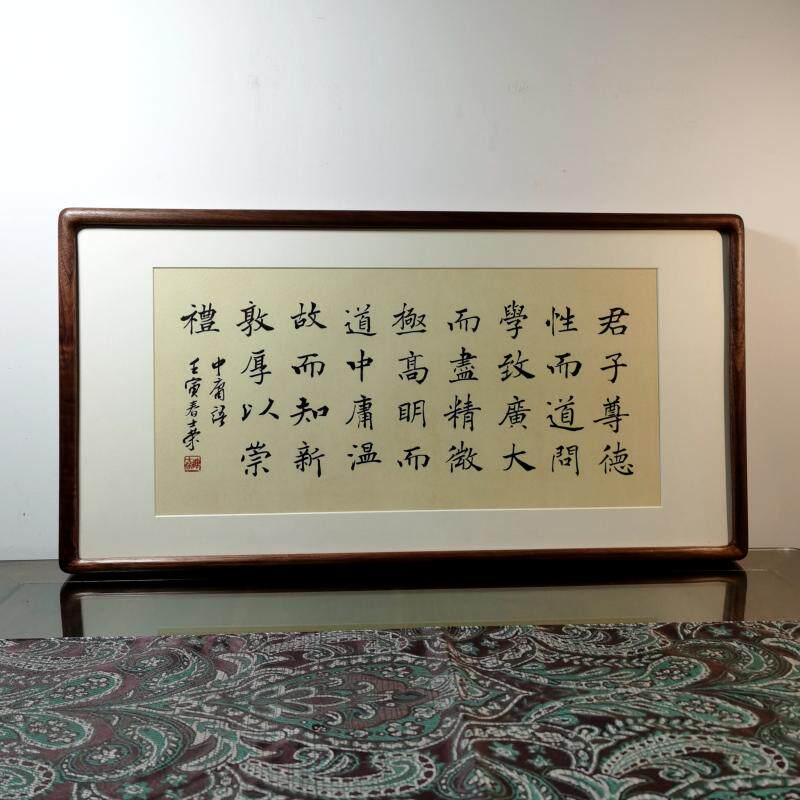 君子尊德
性而道問
學致廣大
而盡精微
極高明而
道中庸温
故而知新
敦厚以崇
禮
中庸語
壬寅春士榮